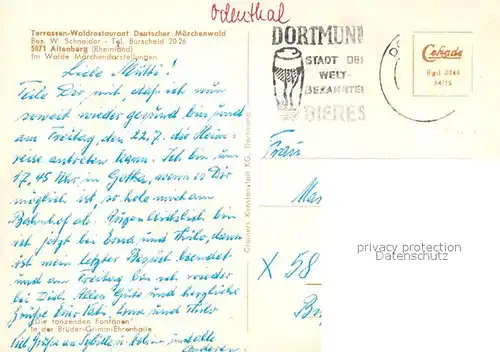 Odenthal
Terrassen-Waldrestaurant Deutscher Märchenwald
Bes. W. Schneider - Tel. Burscheid 20 26
5071 Altenberg (Rheinland)
Im Walde Märchendarstellungen
Liebe Mutti!
Teile Dir mit, daß ich nun
soweit wieder gesund bin und
am Freitag, den 22.7. die Heim-
reise antreten kann. Ich bin um
17,45 Uhr in Gotha, wenn es Dir
möglich ist, so hole mich am
Bahnhof ab. Augenblicklich
ist jetzt bei Erna und Thilo, dann
ist mein letzter Besuch beendet
und am Freitag bin ich wieder
bei Dir. Alles Gute und herzliche
Grüße Erna und Thilo
"Die tanzenden Fontänen"
In der Brüder-Grimm-Ehrenhalle
Viel Grüße an und alle
anderen
Cramers Kunstanstalt KG, Dortmund
DORTMUND
STADT DES
WELT-
BEKANNTEN
BIERES
Cekade
Frau
X 58
privacy protection
Datenschutz